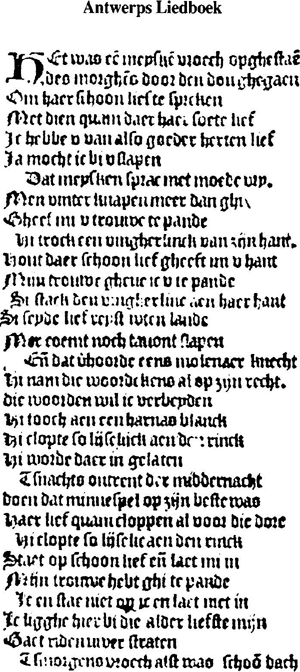 Antwerps Liedboek
HEt was eē meyskē vroech opghestaē
des morghēs door den dou ghegaen
Om haer schoon liefste spreken
Met dien quam daer haer soete lief
Je hebbe v van also goeder herten lief
Ja mocht ic bi v slapen
Dat meysken sprac met moede vry.
Men vinter knapen meer dan ghy
Gheef mi v trouwe te pande
Hi trock een vingherlinck van zijn hant.
Hout daer schoon lief gheeft mi v hant
Mijn trouwe gheue ic v te pande
Si stack den vingherlinc aen haer hant
Si seyde lief reyst wten lande
Mer coemt noch tauont slapen
Eñ dat v̄hoorde eens molenaer knecht
Hi nam die woordekens al op zijn recht.
die woorden wil ic verbeyden
Hi tooch aen een harnas blanck
Hi clopte so lijselijck aen den rinck
Hi worde daer in gelaten
Tsnachts ontrent der middernacht
doen dat minnespel op zijn beste was
Haer lief quam cloppen al voor die dore
Hi clopte so lijselic aen den rinck
Staet op schoon lief eñ laet mi in
Mijn trouwe hebt ghi te pande
Je en stae niet op ic en laet niet in
Je ligghe hier bi die alder liefste mijn
Gaet riden uwer straten
Tsmorgens vroech alst was schoō dach